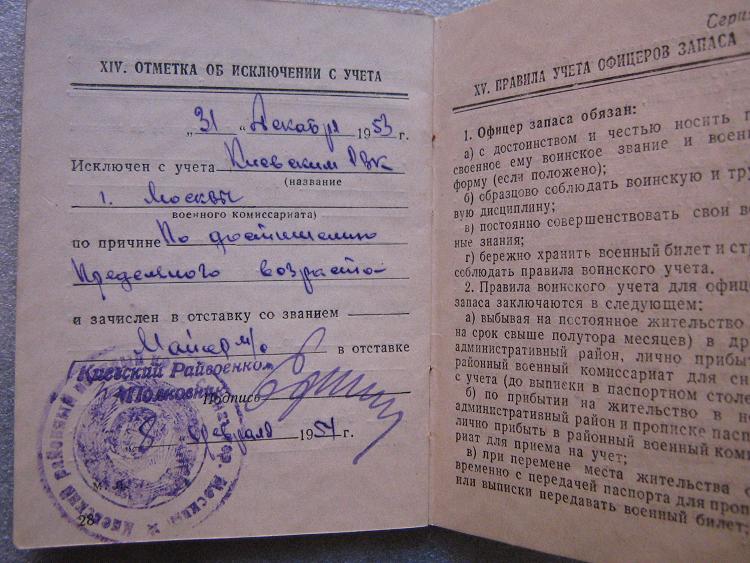 XIV. ОТМЕТКА ОБ ИСКЛЮЧЕНИИ С УЧЕТА
„31" Декабря 1953 г.
Исключен с учета Киевским РВК
(название
г. Москвы
военного комиссариата)
по причине По достижению
Предельного возраста
и зачислен в отставку со званием
Майор м/с в отставке
Киевский Райвоенком
Полковник
Подпись
8 " февраля 1954 г.
28
Серия
XV. ПРАВИЛА УЧЕТА ОФИЦЕРОВ ЗАПАСА
1. Офицер запаса обязан:
а) с достоинством и честью носить п
своенное ему воинское звание и воен
форму (если положено);
б) образцово соблюдать воинскую и тру
вую дисциплину;
в) постоянно совершенствовать свои во
ные знания;
г) бережно хранить военный билет и стр
соблюдать правила воинского учета.
2. Правила воинского учета для офиц
запаса заключаются в следующем:
а) выбывая на постоянное жительство
на срок свыше полутора месяцев) в др
административный район, лично прибыт
районный военный комиссариат для сн
с учета (до выписки в паспортном столе
б) по прибытии на жительство в но
административный район и прописке пасп
лично прибыть в районный военный коми
риат для приема на учет;
в) при перемене места жительства о
временно с передачей паспорта для пропи
или выписки передавать военный билет;